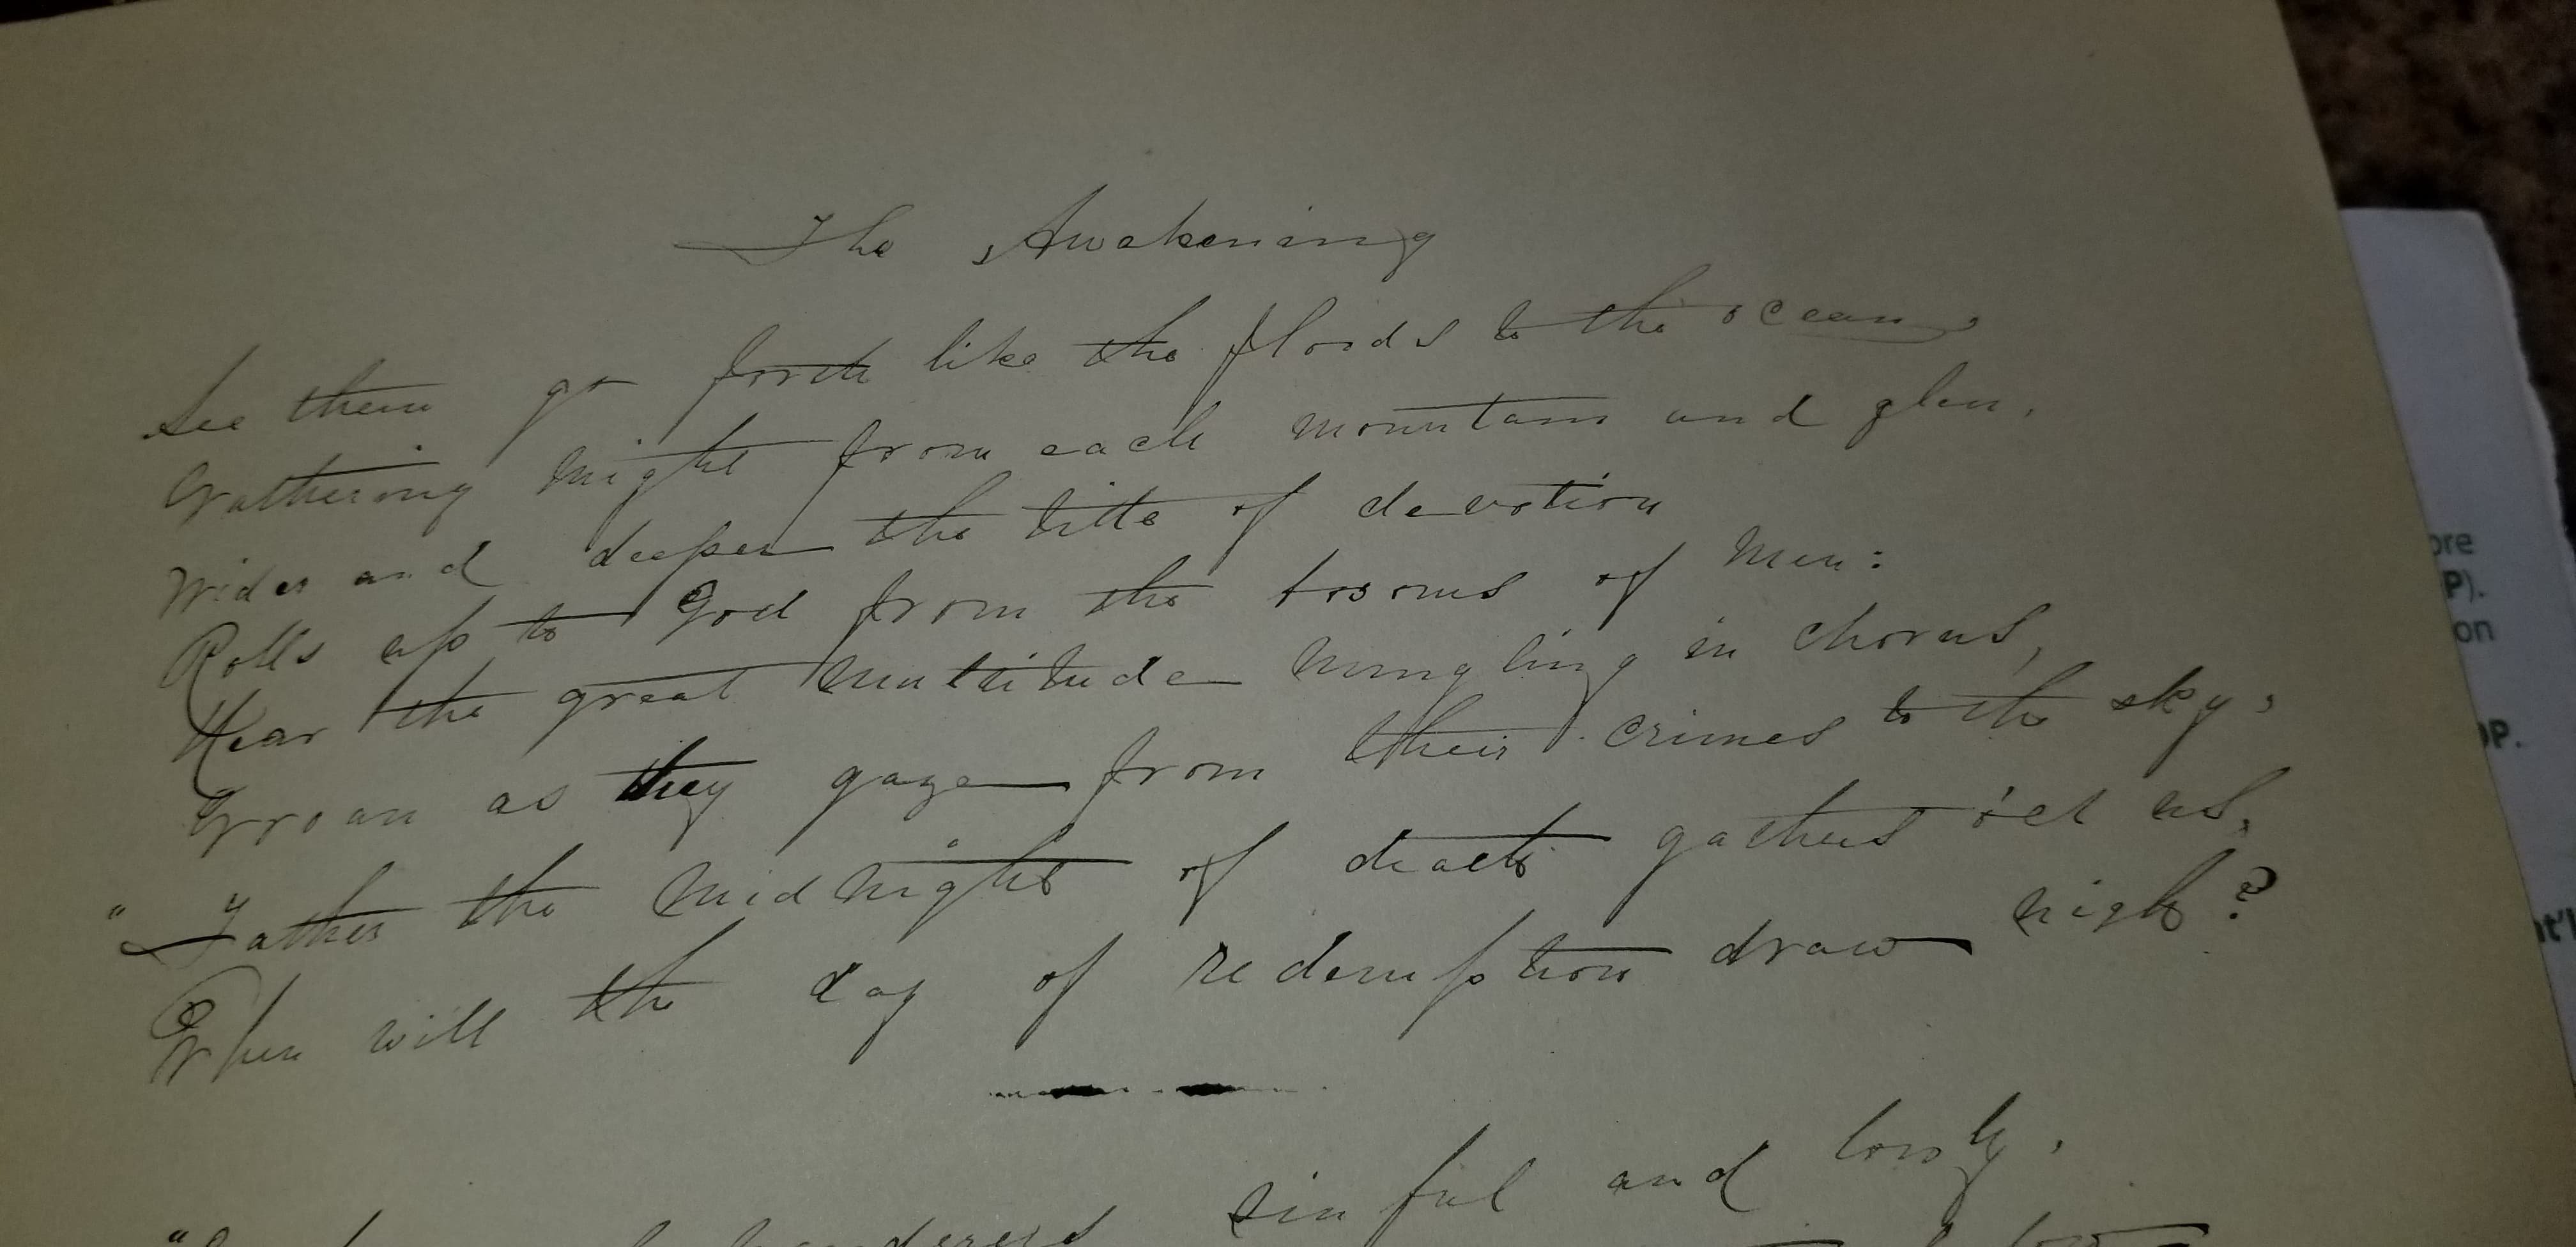 The Awakening
See them go forth like the floods to the ocean,
Gathering might from each mountain and glen,
Wider and deeper the tide of devotion
Rolls up to God from the bosoms of men:
Hear the great multitude mingling in chorus,
Groan as they gaze from their crimes to the sky,
"Father the midnight of death gathers o'er us,
When will the day of redemption draw nigh?
sinful and lowly,
ore
P).
on
OP.